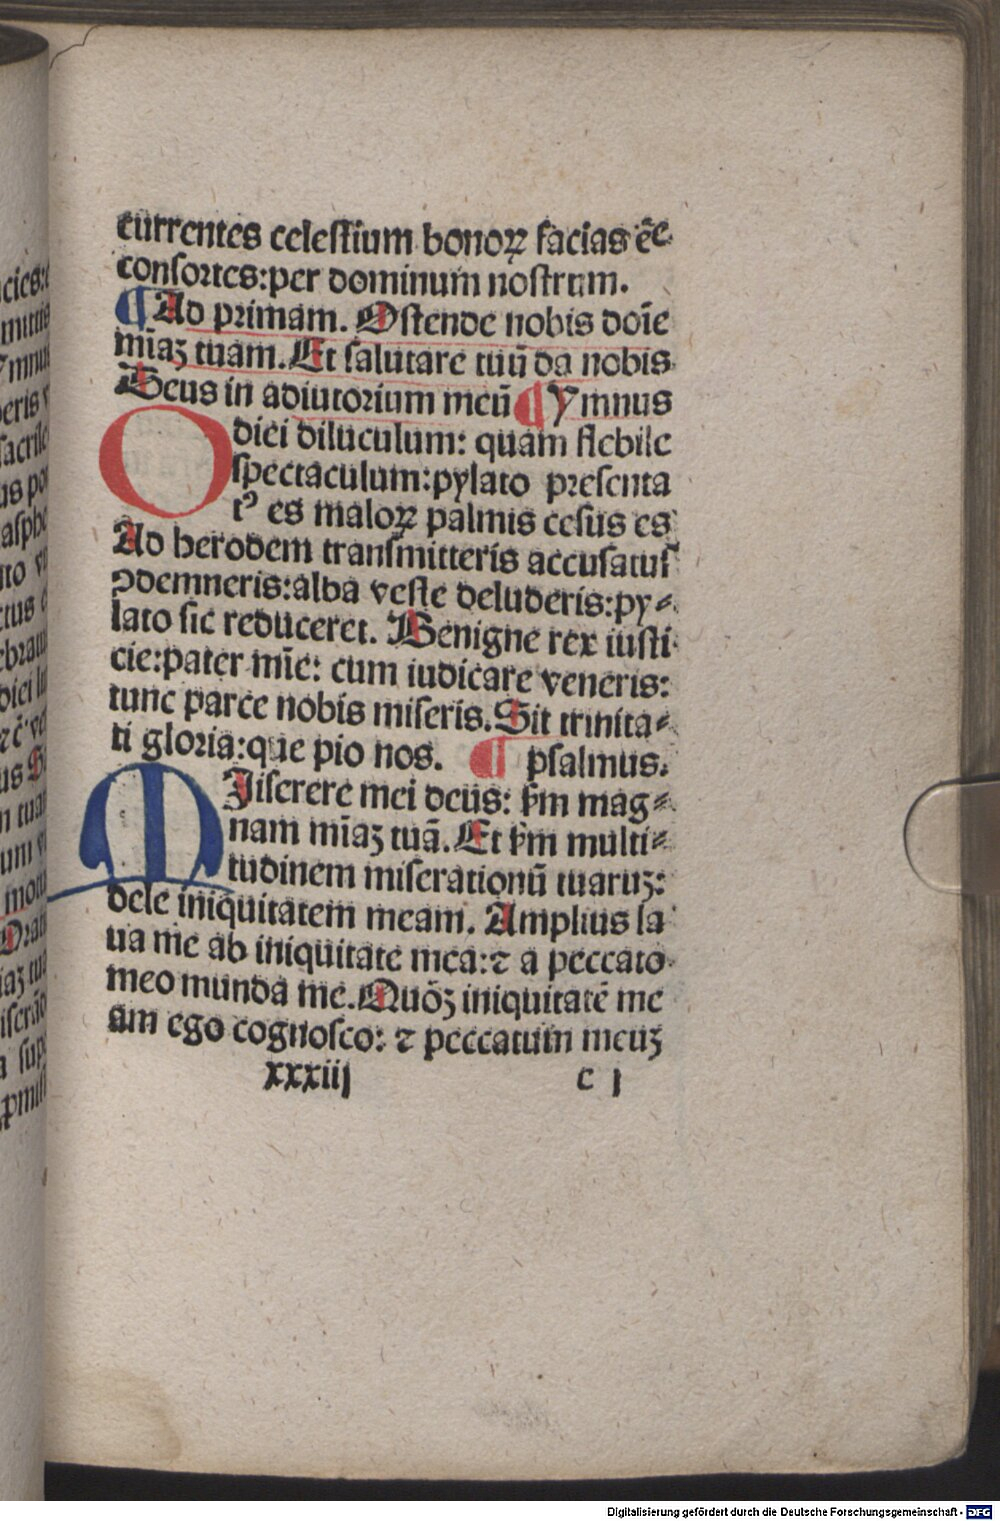 currentes celestium bonoꝝ facias eē
consortes:per dominum nostrum.
¶ Ad primam. Ostende nobis doīe
mīaʒ tuam. Et salutare tuū da nobis
Deus in adiutorium meū ¶ Ymnus
O diei diluculum: quam flebile
spectaculum:pylato presenta
tꝰ es maloꝝ palmis cesus es
Ad herodem transmitteris accusatus
ↄdemneris:alba veste deluderis:py⸗
lato sic reduceret. Benigne rex iusti
cie:pater mīe: cum iudicare veneris:
tunc parce nobis miseris. Sit trinita⸗
ti gloria:que pio nos. ¶ psalmus.
MIserere mei deus: ẜm mag⸗
nam mīaʒ tuā. Et ẜm multi⸗
tudinem miserationū tuaruʒ:
dele iniquitatem meam. Amplius la
ua me ab iniquitate mea:⁊ a peccato
meo munda me. Quōʒ iniquitatē me
am ego cognosco: ⁊ peccatum meuʒ
xxxiij c j
Digitalisierung gefördert durch die Deutsche Forschungsgemeinschaft - DFG